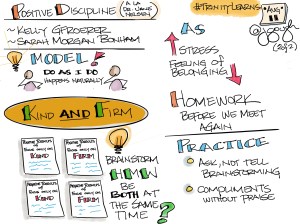 Positive Discipline
À LA
DR. JANE
NELSEN
~ Kelly Gfroerer
~ Sarah Morgan Bonham
Model!
Do as I do
Happens naturally
Kind AND Firm
Kind
Firm
Kind
Firm
Brainstorm
HMW
Be
BOTH at the
same time?
#TrinityLearns
As
↑ Stress
Feeling of
Belonging ↓
Homework
Before we meet
again
Practice
Ask, not tell
Brainstorming
Compliments
without praise